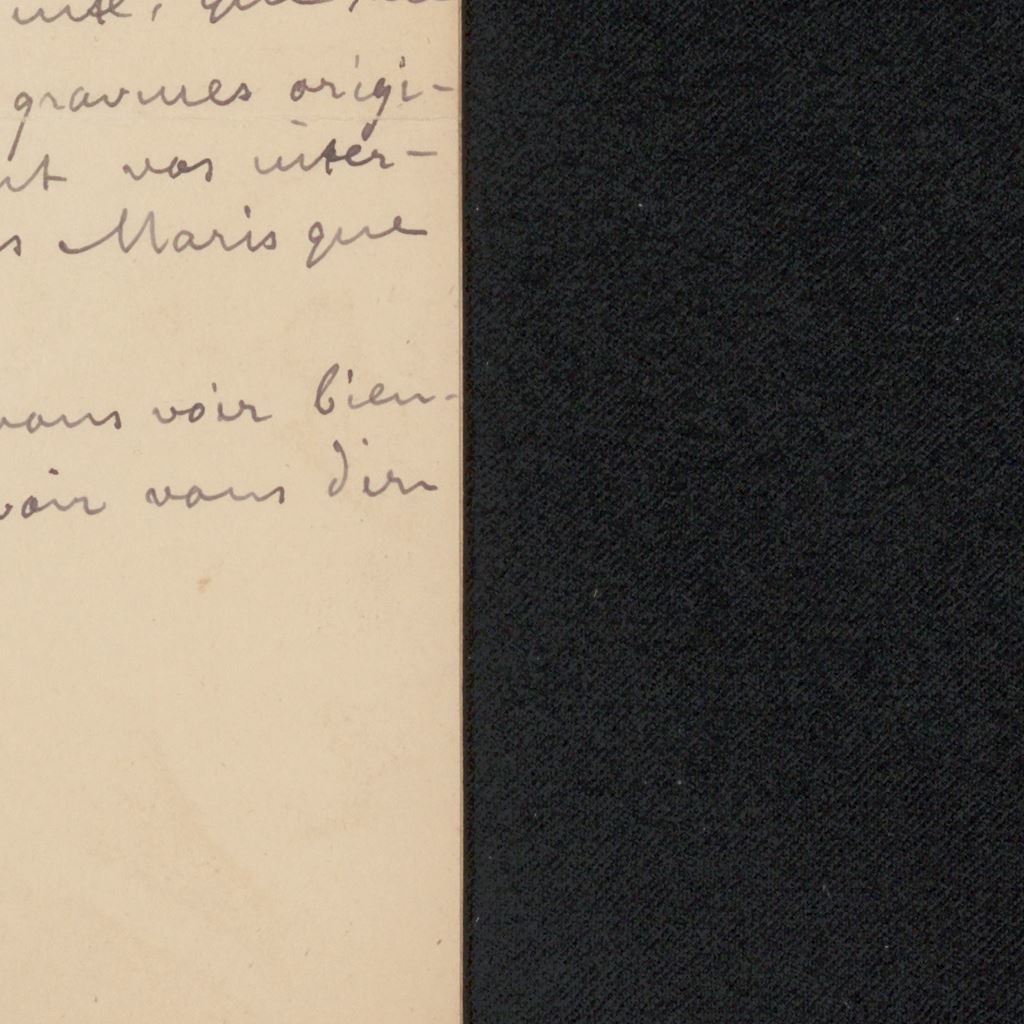 gravures origi-
vos inter-
Maris que
vous voir bien-
voir vous dire